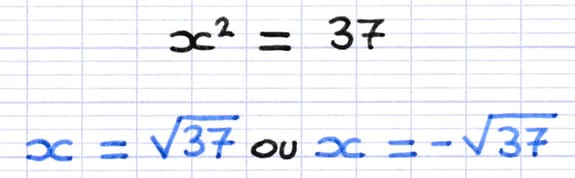 x² = 37
x = √37 ou x = -√37